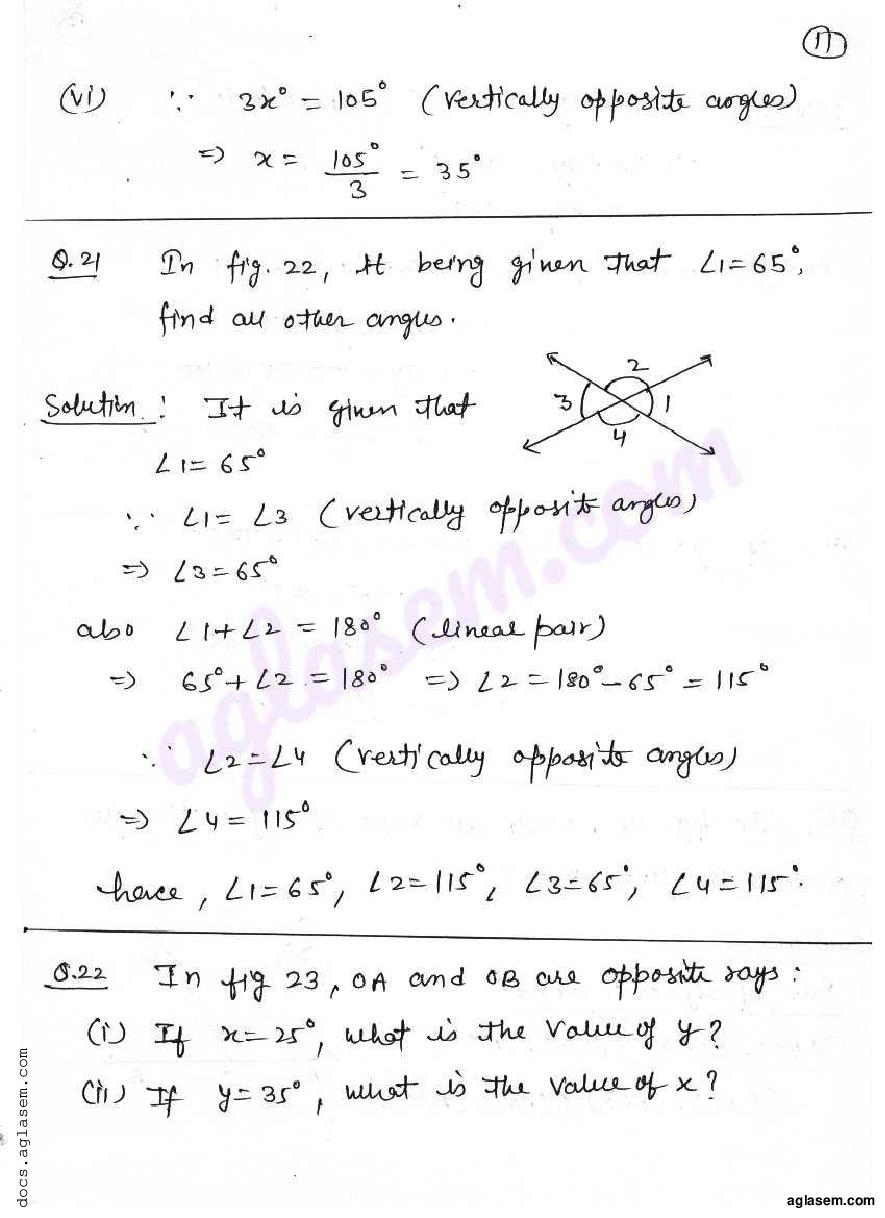 11
(vi) ∵ 3x° = 105° (vertically opposite angles)
⇒ x = 105°/3 = 35°
Q.21 In fig. 22, it being given that ∠1=65°,
find all other angles.
2
3
1
4
Solution : It is given that
∠1= 65°
∵ ∠1= ∠3 (vertically opposite angles)
⇒ ∠3=65°
also ∠1+∠2 = 180° (linear pair)
⇒ 65°+∠2 = 180° ⇒ ∠2 = 180°-65° = 115°
∵ ∠2=∠4 (vertically opposite angles)
⇒ ∠4= 115°
hence, ∠1=65°, ∠2=115°, ∠3=65°, ∠4=115°.
Q.22 In fig 23, OA and OB are opposite rays:
(i) If x=25°, what is the value of y?
(ii) If y=35°, what is the value of x?
aglasem.com
docs.aglasem.com
aglasem.com